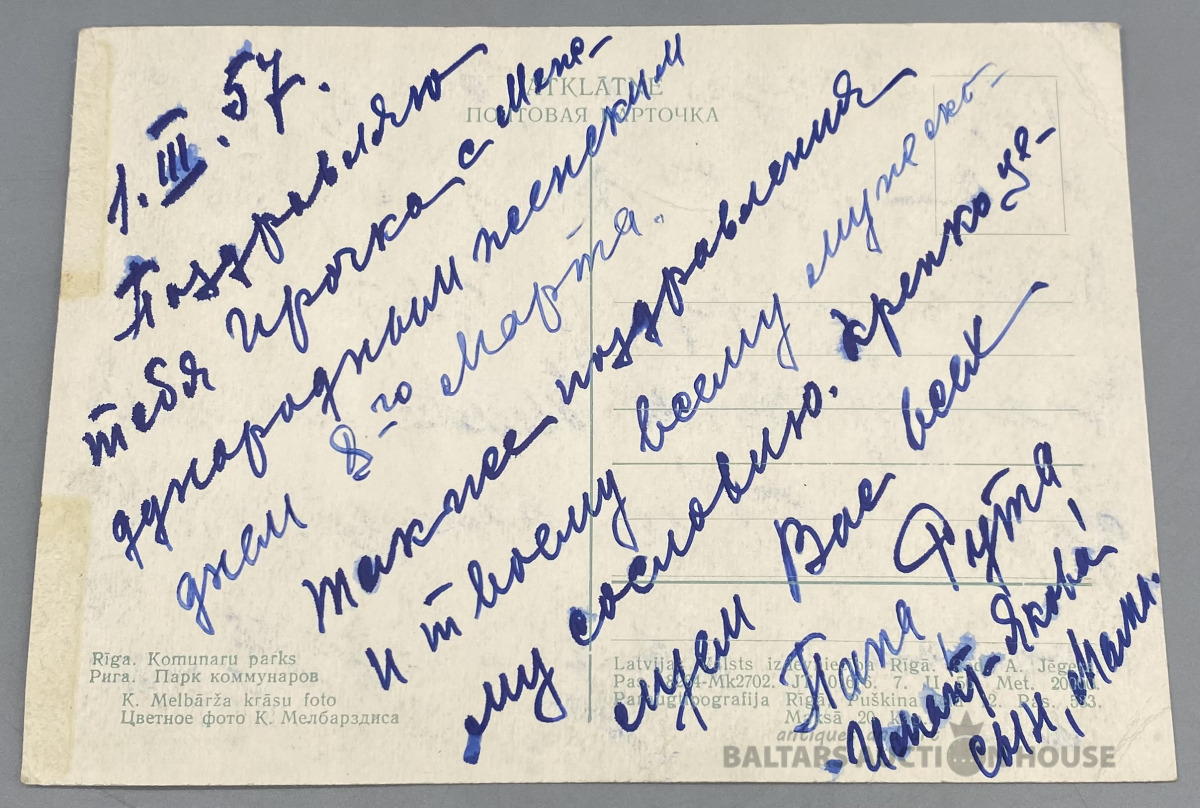 1.III.57.
Поздравляю
тебя Ирочка с Меж-
дународным женским
днем 8-го Марта.
также поздравления
и твоему всему мужско-
му сословию. крепко це-
луем Вас всех
Рута,
Папа,
Якова,
сын, мама.
ATKLĀTNE
ПОЧТОВАЯ КАРТОЧКА
Rīga. Komunaru parks
Рига. Парк коммунаров
K. Melbārža krāsu foto
Цветное фото К. Мелбарздиса
Latvijas Valsts izdevniecība Rīgā. Red. A. Jēgers
Met.
Paraugtipografija Rīgā, Puškina
Maksā 20 kap.
antiques
BALTARS AUCTION HOUSE